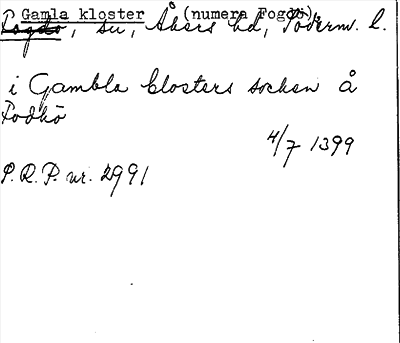 Gamla kloster (numera Fogdö)
Fogdö, sn, Åkers hd, Söderm. l.
i Gambla klosters sochen å
Fodhö
4/7 1399
P.R.P. nr. 2991